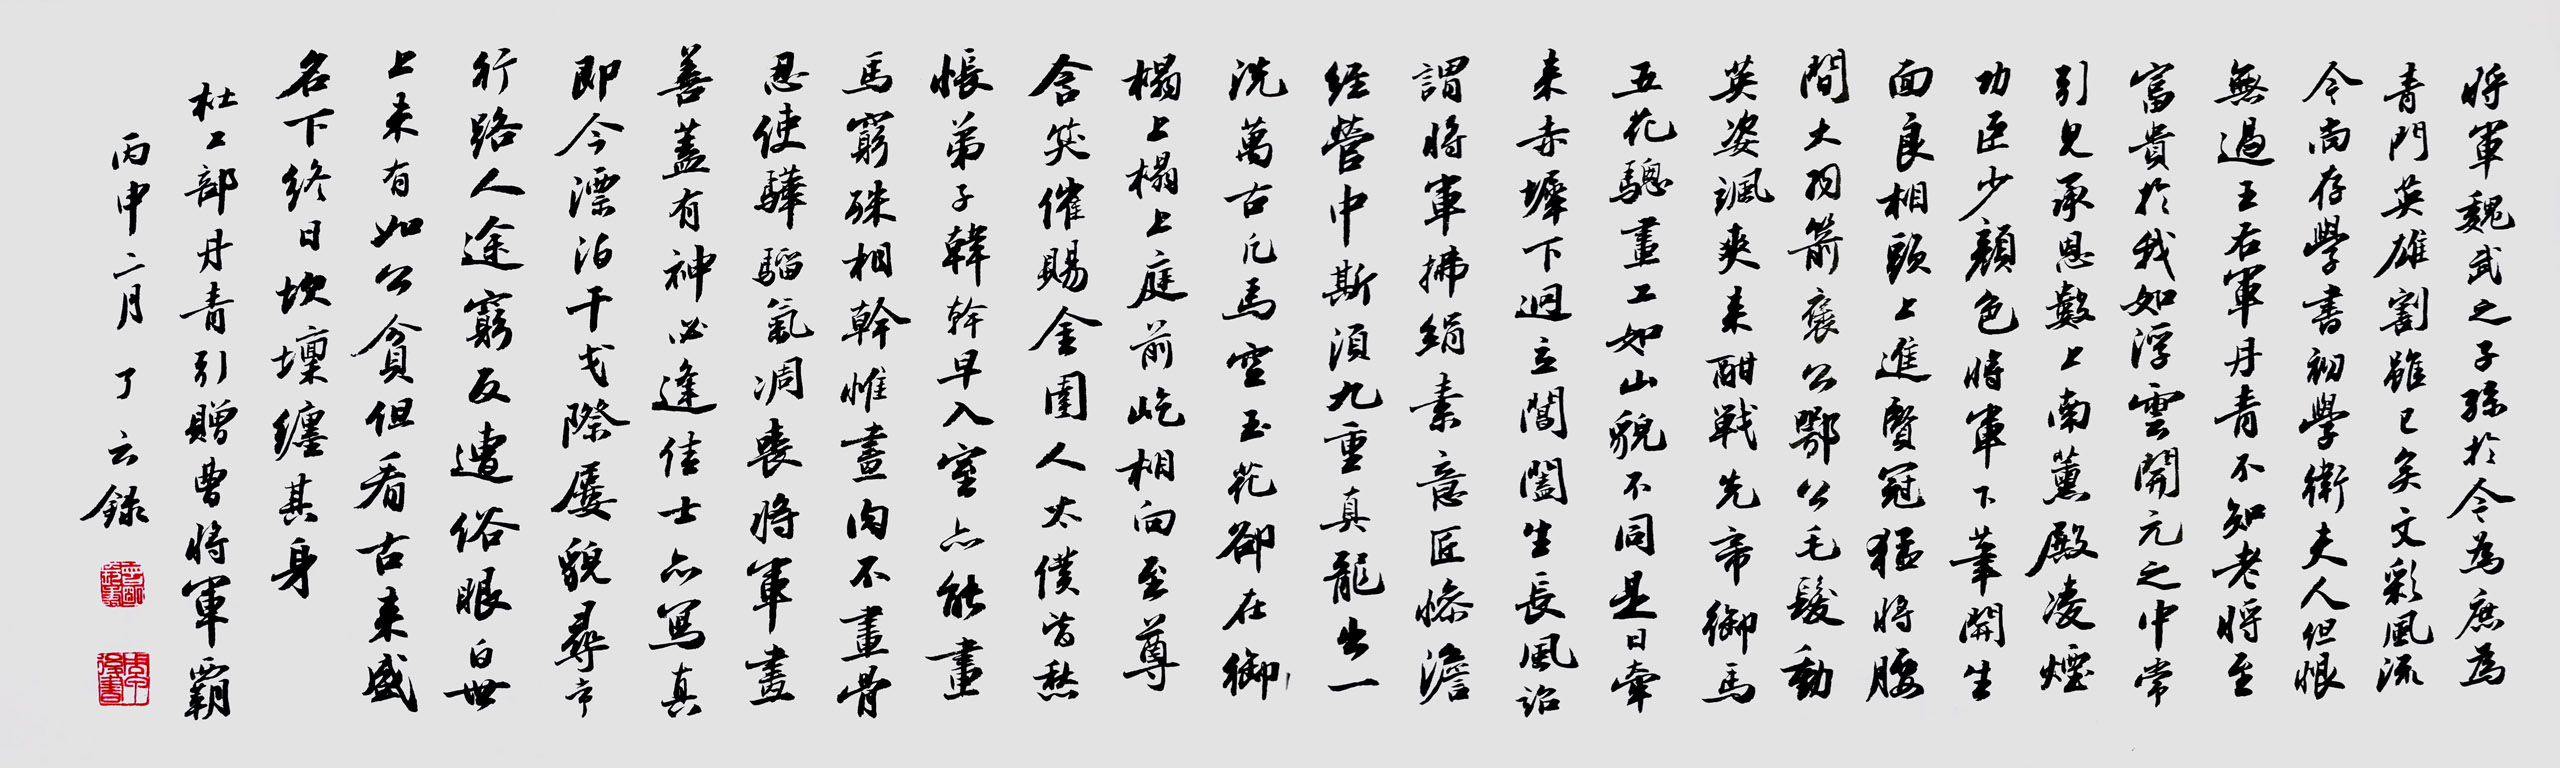 将軍魏武之子孫於今為庶為
青門英雄割雖已矣文彩風流
今尚存學書初學衛夫人但恨
無過王右軍丹青不知老将至
富貴於我如浮雲開元之中常
引見承恩數上南薰殿凌煙
功臣少顏色将軍下筆開生
面良相頭上進賢冠猛将腰
間大羽箭褒公鄂公毛髮動
英姿颯爽来酣戦先帝御馬
五花驄畫工如山貌不同是日牽
来赤墀下迥立閶闔生長風詔
謂将軍拂絹素意匠慘澹
經營中斯須九重真龍出一
洗萬古凡馬空玉花卻在御
榻上榻上庭前屹相向至尊
含笑催賜金圉人太僕皆愁
悵弟子韓幹早入室亦能畫
馬窮殊相幹惟畫肉不畫骨
忍使驊騮氣凋喪将軍畫
善蓋有神必逢佳士亦寫真
即今漂泊干戈際屢貌尋常
行路人途窮反遭俗眼白世
上未有如公貧但看古来盛
名下終日坎壈纏其身
杜工部丹青引贈曹将軍霸
丙申二月了云錄